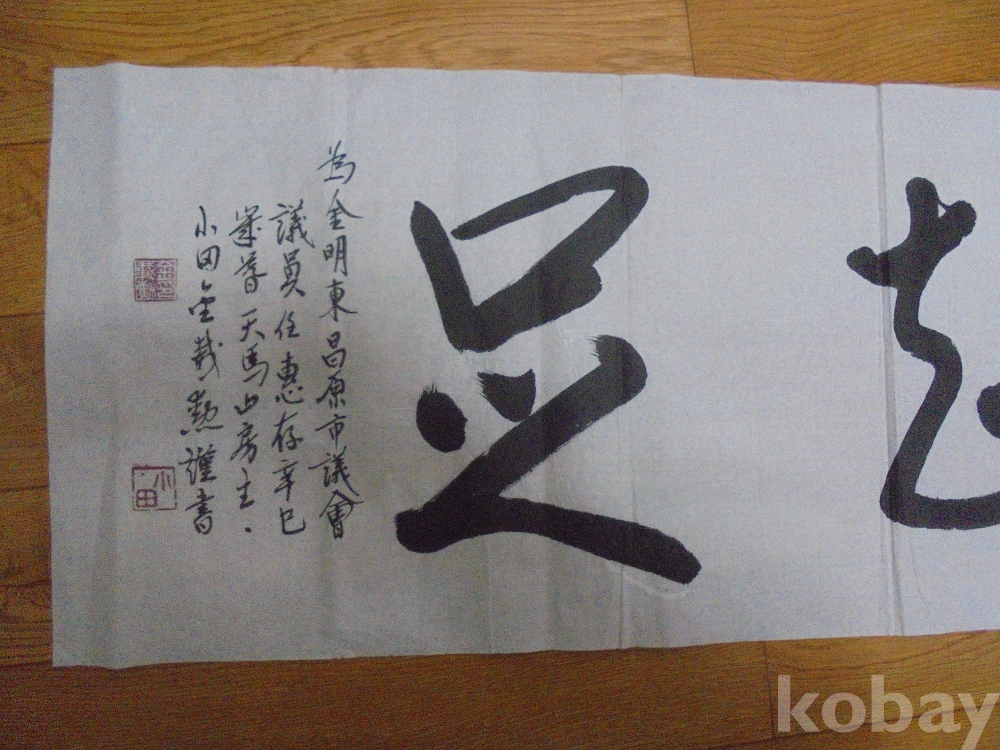 足
為金明東昌原市議會
議員任惠存辛巳
天馬山房主
小田金載謹書
小田
kobay